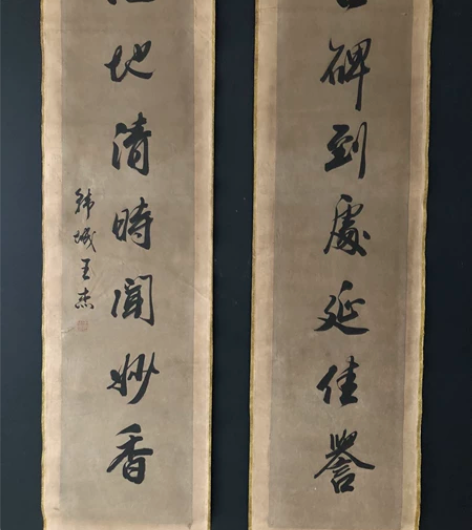 碑到處延佳譽
地清時聞妙香
韓城王杰